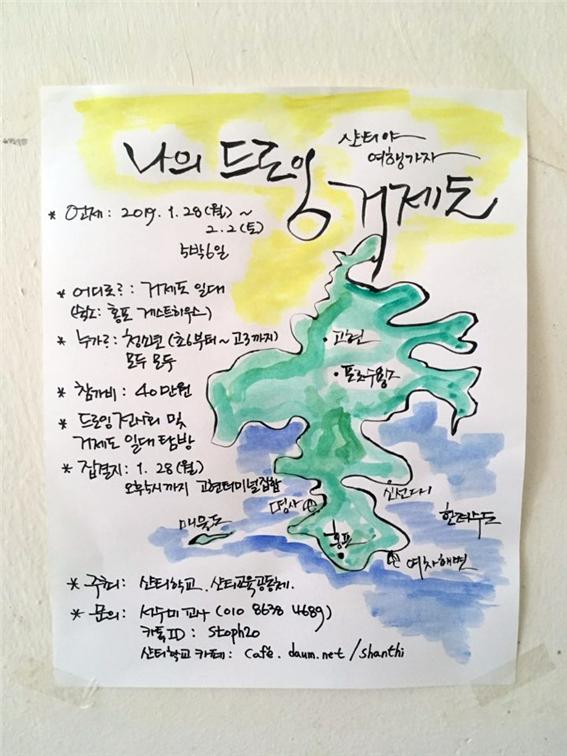 샨티야
여행가자
나의 드로잉
거제도
* 언제: 2019. 1. 28(월) ~
2. 2(토)
5박6일
* 어디로?: 거제도 일대
(숙소: 홍포 게스트하우스)
* 누가?: 청소년 (초6부터~고3까지)
모두 모두
* 참가비: 40만원
* 드로잉전시회 및
거제도 일대 탐방
* 집결지: 1. 28(월)
오후5시까지 고현터미널집합
고현
포로수용소
명사
신선대
매물도
한려수도
홍포
여차해변
* 주최: 샨티학교, 샨티교육공동체.
* 문의: 서두미 교사 (010 8638 4689)
카톡ID: Stoph20
샨티학교 카페: Cafe. daum.net/shanthi